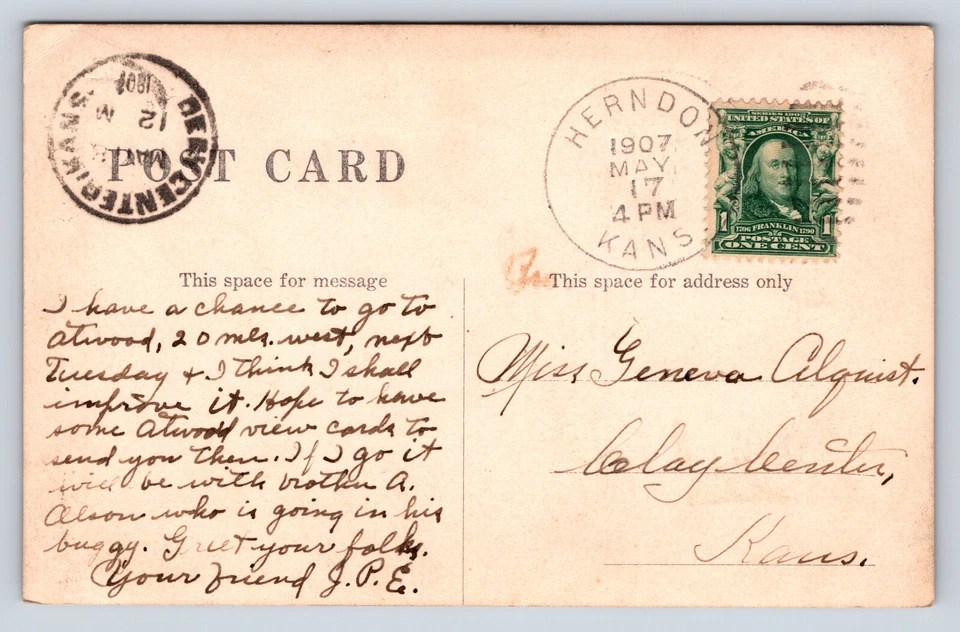 POST CARD
CENTER, KANS.
MAY
12
M
1907
HERNDON
1907
MAY
17
4 PM
KANS
SERIES 1902
UNITED STATES OF
AMERICA
1 1706 FRANKLIN 1790 1
POSTAGE
ONE CENT
This space for message
I have a chance to go to
Atwood, 20 mls. west, next
Tuesday & I think I shall
improve it. Hope to have
some Atwood view cards to
send you then. If I go it
will be with brother A.
Olson who is going in his
buggy. Greet your folks.
Your friend J. P. E.
This space for address only
Miss Geneva Alquist.
Clay Center,
Kans.